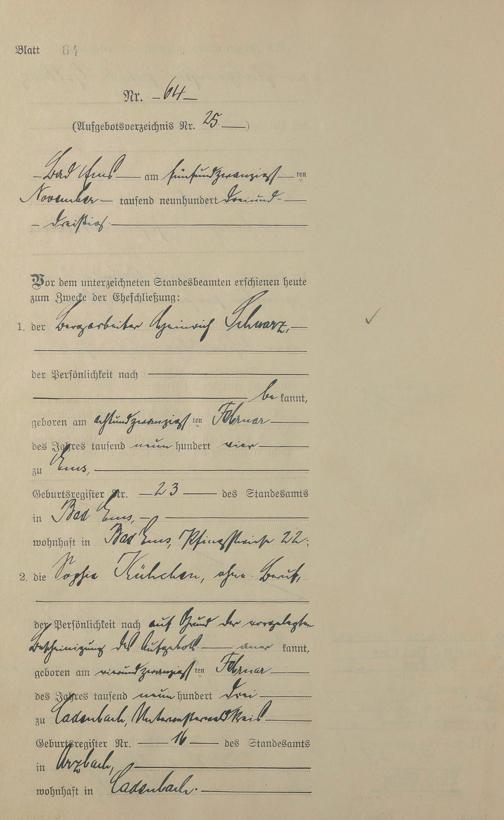 Blatt 64
Nr. 64
(Aufgebotsverzeichnis Nr. 25)
Bad Ems am fünfundzwanzigsten
November tausend neunhundert dreiund-
dreißig.
Vor dem unterzeichneten Standesbeamten erschienen heute
zum Zwecke der Eheschließung:
1. der Bergarbeiter Heinrich Schwarz,
der Persönlichkeit nach
be kannt,
geboren am achtundzwanzigsten Februar
des Jahres tausend neun hundert vier
zu Ems,
Geburtsregister Nr. 23 des Standesamts
in Bad Ems,
wohnhaft in Bad Ems, 22.
2. die Sophie ohne Beruf,
der Persönlichkeit nach auf Grund der vorgelegten
Bescheinigung des Aufgebots aner kannt,
geboren am vierundzwanzigsten Februar
des Jahres tausend neun hundert drei
zu Cadenbach, Unterwesterwaldkreis
Geburtsregister Nr. 16 des Standesamts
in Arzbach,
wohnhaft in Cadenbach.